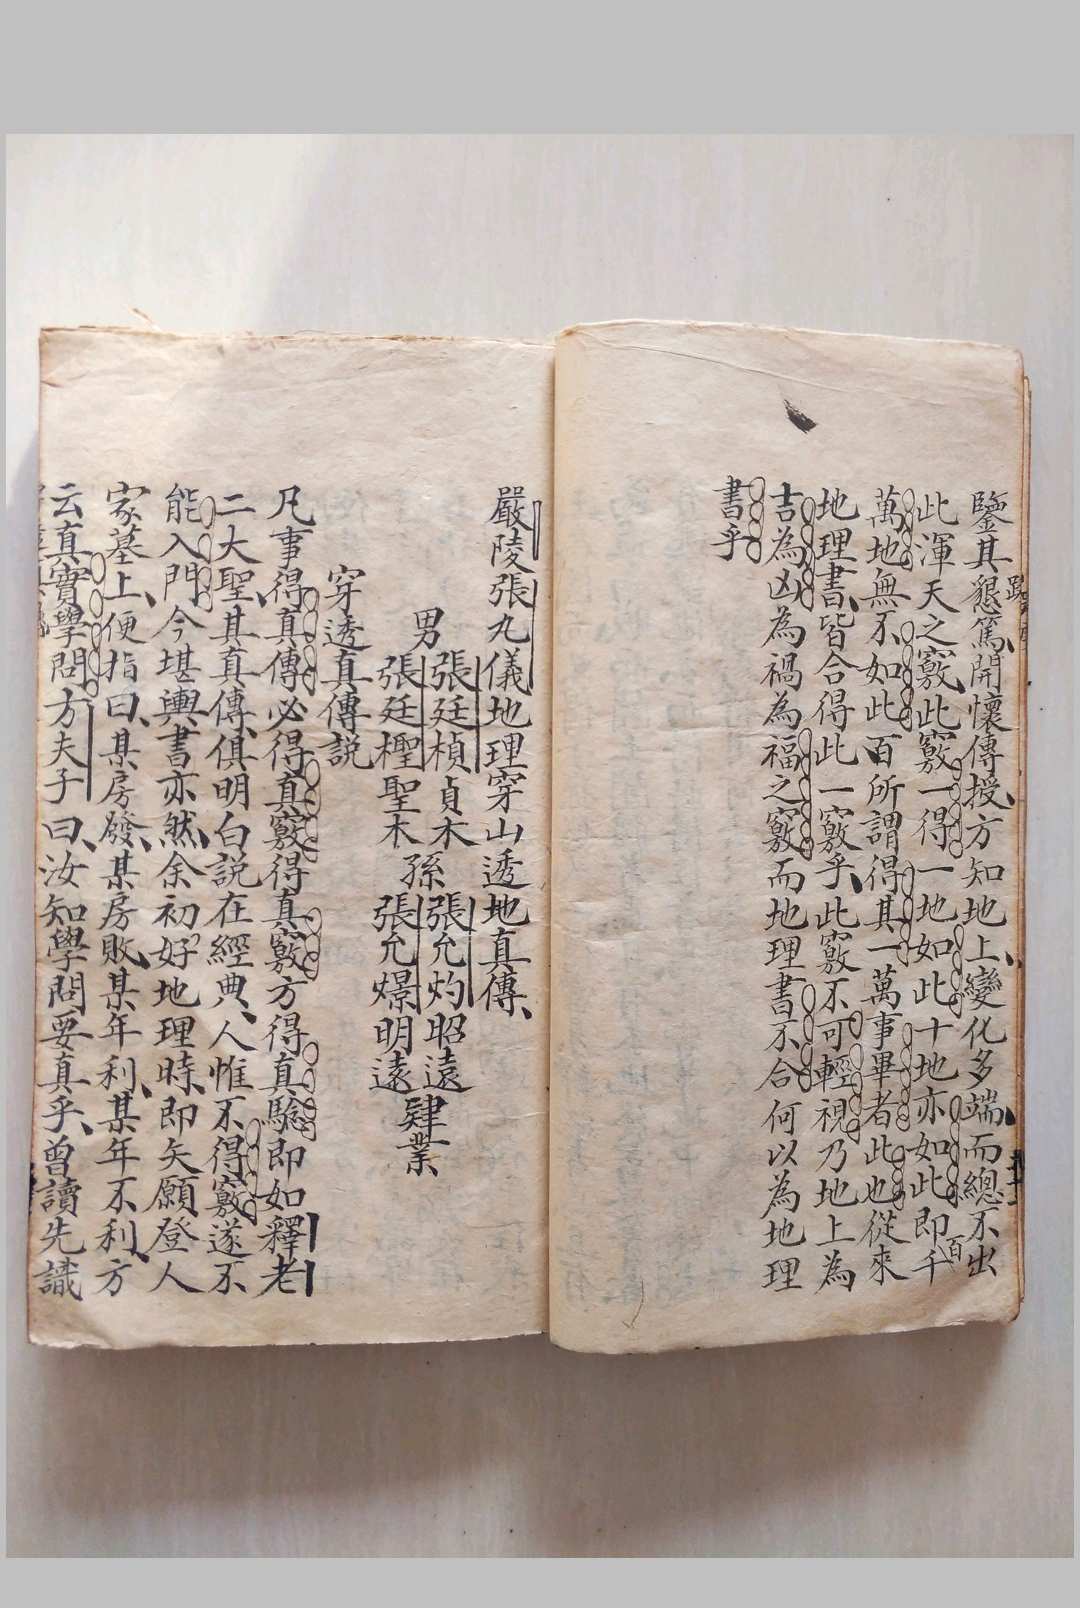 鑒其懇篤開懷傳授方知地上變化多端而總不出
此渾天之竅此竅一得一地如此十地亦如此即千百
萬地無不如此百所謂得其一萬事畢者此也從來
地理書皆合得此一竅乎此竅不可輕視乃地上為
吉為凶為禍為福之竅而地理書不合何以為地理
書乎
嚴陵張九儀地理穿山透地真傳
男
張廷楨貞木
張廷檉聖木
孫
張允灼昭遠
張允煚明遠
肄業
穿透真傳説
凡事得真傳必得真竅得真竅方得真驗即如釋老
二大聖其真傳俱明白説在經典人惟不得竅遂不
能入門今堪輿書亦然余初好地理時即矢願登人
家墓上便指曰某房發某房敗某年利某年不利方
云真實學問方夫子曰汝知學問要真乎曾讀先識